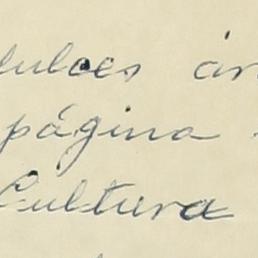 dulces
página
Cultura